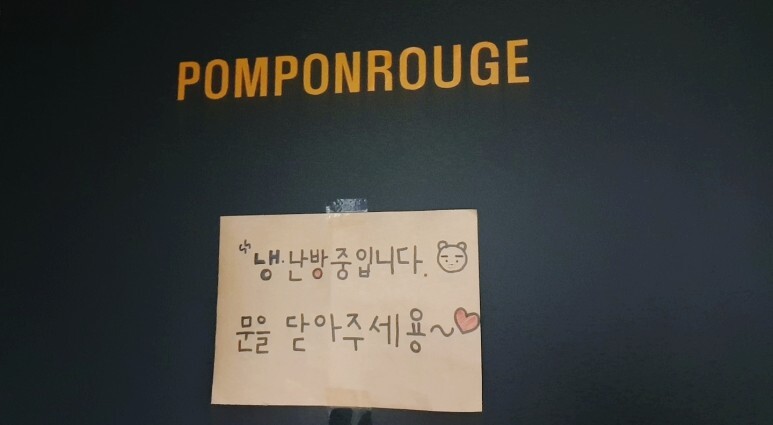 POMPONROUGE
"냉·난방중입니다.
문을 닫아주세용~